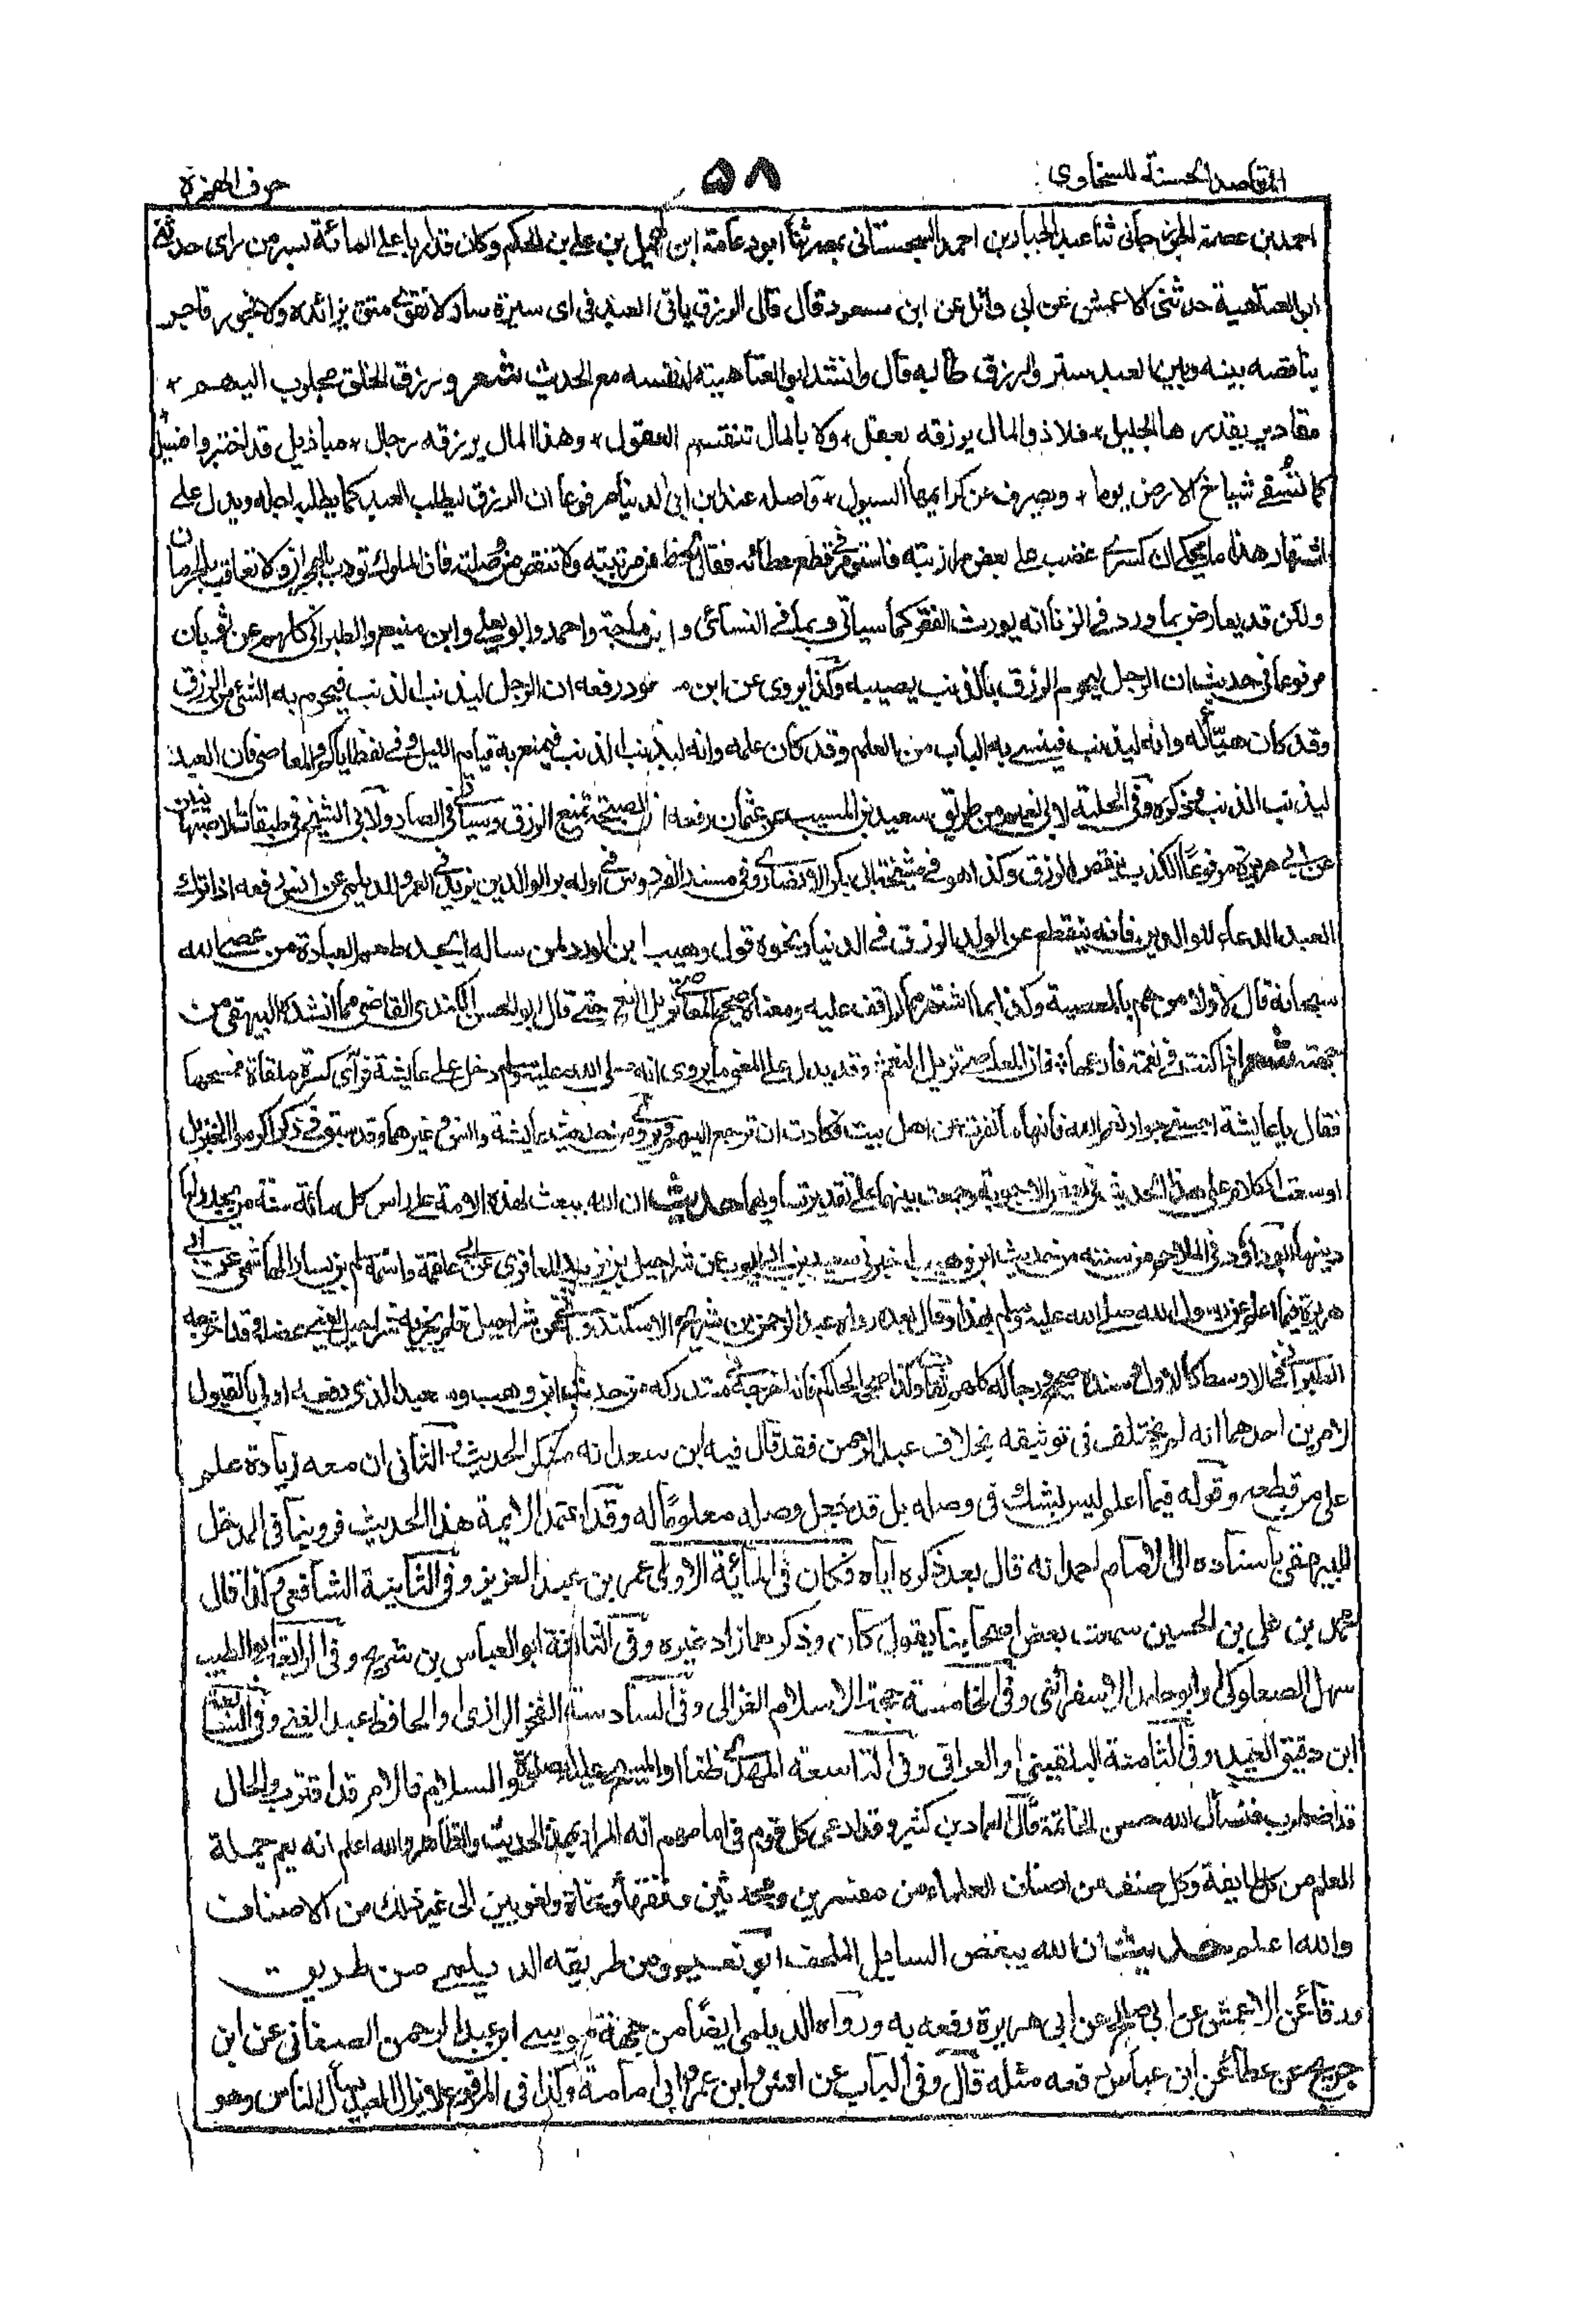 المقاصد الحسنة للسخاوي
۵۸
حرف الهمزة
احمد بن عصمة الجرجاني ثنا عبد الجبار بن احمد السجستاني بمصر ثنا ابو دعامة ابن بن علي بن الحكم وكان قد اربا على المائة بسر من راى حدثنى
ابو العتاهية حدثنى الاعمش عن ابي وائل عن ابن مسعود قال قال الرزق ياتى العبد فى اى سيرة سار لا تقوى متق بزائده ولا فجور فاجر
بناقصه بينه وبين العبد ستر والرزق طالبه قال وانشد ابو العتاهية لنفسه مع الحديث شعر ورزق الخلق مجلوب اليهم +
مقادير يقدرها الجليل + فلا ذو المال يرزقه بعقل + ولا بالمال تنقسم العقول + وهذا المال يرزقه رجال +
كما تسقى سباخ الارض يوما + ويصرف عن كرايمها السيول + واصله عند ابن ابى الدنيا مرفوعا ان الرزق ليطلب العبد كما يطلبه اجله ويدل على
اشتهار هذا ما يحكى ان كسرى غضب على بعض مرازبته فاستؤمر فى قطع عطائه فقال يحط عن مرتبته ولا تنقص من صلته فان الملوك تؤدب بالهجران ولا تعاقب بالحرمان
ولكن قد يعارض بما ورد فى الزنا انه يورث الفقر كما سياتى وبما فى النسائى وابن ماجة واحمد وابو يعلى وابن منيع والطبرانى كلهم عن ثوبان
مرفوعا فى حديث ان الرجل ليحرم الرزق بالذنب يصيبه وكذا يروى عن ابن مسعود رفعه ان الرجل ليذنب الذنب فيحرم به الشئ من الرزق
وقد كان هيّأ له وانه ليذنب فينسى به الباب من العلم وقد كان علمه وانه ليذنب الذنب فيمنع به قيام الليل وفى لفظ اياكم والمعاصى فان العبد
ليذنب الذنب وذكره وفى الحلية لابى نعيم من طريق سعيد بن المسيب عن عثمان رفعه ان الصبحة تمنع الرزق وسياتى فى الصاد ولابى الشيخ فى طبقات الاصبهانيين
عن ابى هريرة مرفوعاً الكذب ينقص الرزق وكذا هو فى مشيخة ابى بكر الانصارى وفى مسند الفردوس فى اوله بر الوالدين يزيد فى العمر وللديلمى عن انس رفعه اذا ترك
العبد الدعاء للوالدين فانه ينقطع عن الولد الرزق فى الدنيا ونحوه قول وهيب ابن الورد لمن ساله ايجد طعم العبادة من عصى الله
سبحانه قال لا ولا من هم بالمعصية وكذا مما اشتهر مما لم اقف عليه ومعناه صحيح المعاصى تزيل النعم حتى قال ابو الحسن الكندى القاضى مما انشده البيهقى من
جهته شعر اذا كنت فى نعمة فارعها فان المعاصى تزيل النعم وقد يدل على المعنى ما يروى انه صلى الله عليه وسلم دخل على عايشة فرأى كسرة ملقاة فمسحها
فقال يا عايشة احسنى جوار نعم الله فانها ما نفرت عن اهل بيت فكادت ان ترجع اليهم وروى من حديث عايشة وانس وغيرهما وقد سبق فى ذكر اكرموا الخبز بل
اوسعت الكلام على هذا الحديث فى بعض الاجوبة وجمعت بينهما على تقدير تساويهما حديث ان الله يبعث لهذه الامة على راس كل مائة سنة من يجدد لها
دينها ابو داؤد فى الملاحم من سننه من حديث ابن وهب اخبرنى سعيد بن ابى ايوب عن شراحيل بن يزيد المعافرى عن ابى علقمة واسمه مسلم بن يسار الهاشمى عن ابى
هريرة فيما اعلم عن رسول الله صلى الله عليه وسلم بهذا وقال بعده رواه عبد الرحمن بن شريح الاسكندرانى عن شراحيل فلم يجز به شراحيل يعنى عضله وقد اخرجه
الطبرانى فى الاوسط كالاول وسنده صحيح ورجاله كلهم ثقات وكذا صححه الحاكم فانه اخرجه فى مستدركه من حديث ابن وهب وسعيد الذى رفعه اولى بالقبول
لامرين احدهما انه لم يختلف فى توثيقه بخلاف عبد الرحمن فقد قال فيه ابن سعد انه منكر الحديث والثانى ان معه زيادة علم
على من قطعه وقوله فيما اعلم ليس بشك فى وصله بل قد جعل وصله معلوماً له وقد اعتمد الايمة هذا الحديث فروينا فى المدخل
للبيهقى باسناده الى الامام احمد انه قال بعد ذكره اياه فكان فى المائة الاولى عمر بن عبد العزيز وفى الثانية الشافعى وكذا قال
محمد بن على بن الحسين سمعت بعض اصحابنا يقول كان وذكرهما زاد غيره وفى الثالثة ابو العباس بن شريح وفى الرابعة ابو الطيب
سهل الصعلوكى وابو حامد الاسفرائنى وفى الخامسة حجة الاسلام الغزالى وفى السادسة الفخر الرازى والحافظ عبد الغنى وفى السابعة
ابن دقيق العيد وفى الثامنة البلقينى والعراقى وفى التاسعة المهدى ظنا او المسيح عليه الصلوة والسلام فالامر قد اقترب والحال
قد اضطرب فنسأل الله حسن الخاتمة قال العماد بن كثير وقد ادعى كل قوم فى امامهم انه المراد بهذا الحديث والظاهر والله اعلم انه يعم جملة
العلم من كل طايفة وكل صنف من اصناف العلماء من مفسرين ومحدثين وفقهاء ونحاة ولغويين الى غير ذلك من الاصناف
والله اعلم حديث ان الله يبغض السايل الملحف ابو نعيم ومن طريقه الديلمى من طريق
ورقاء عن الاعمش عن ابى صالح عن ابى هريرة رفعه به ورواه الديلمى ايضاً من جهة ابو عبد الرحمن عن ابن
جريج عن عطاء عن ابن عباس رفعه مثله قال وفى الباب عن انس وابن عمر وابى امامة وكذا فى المرفوع لا يزال العبد يسأل الناس وهو